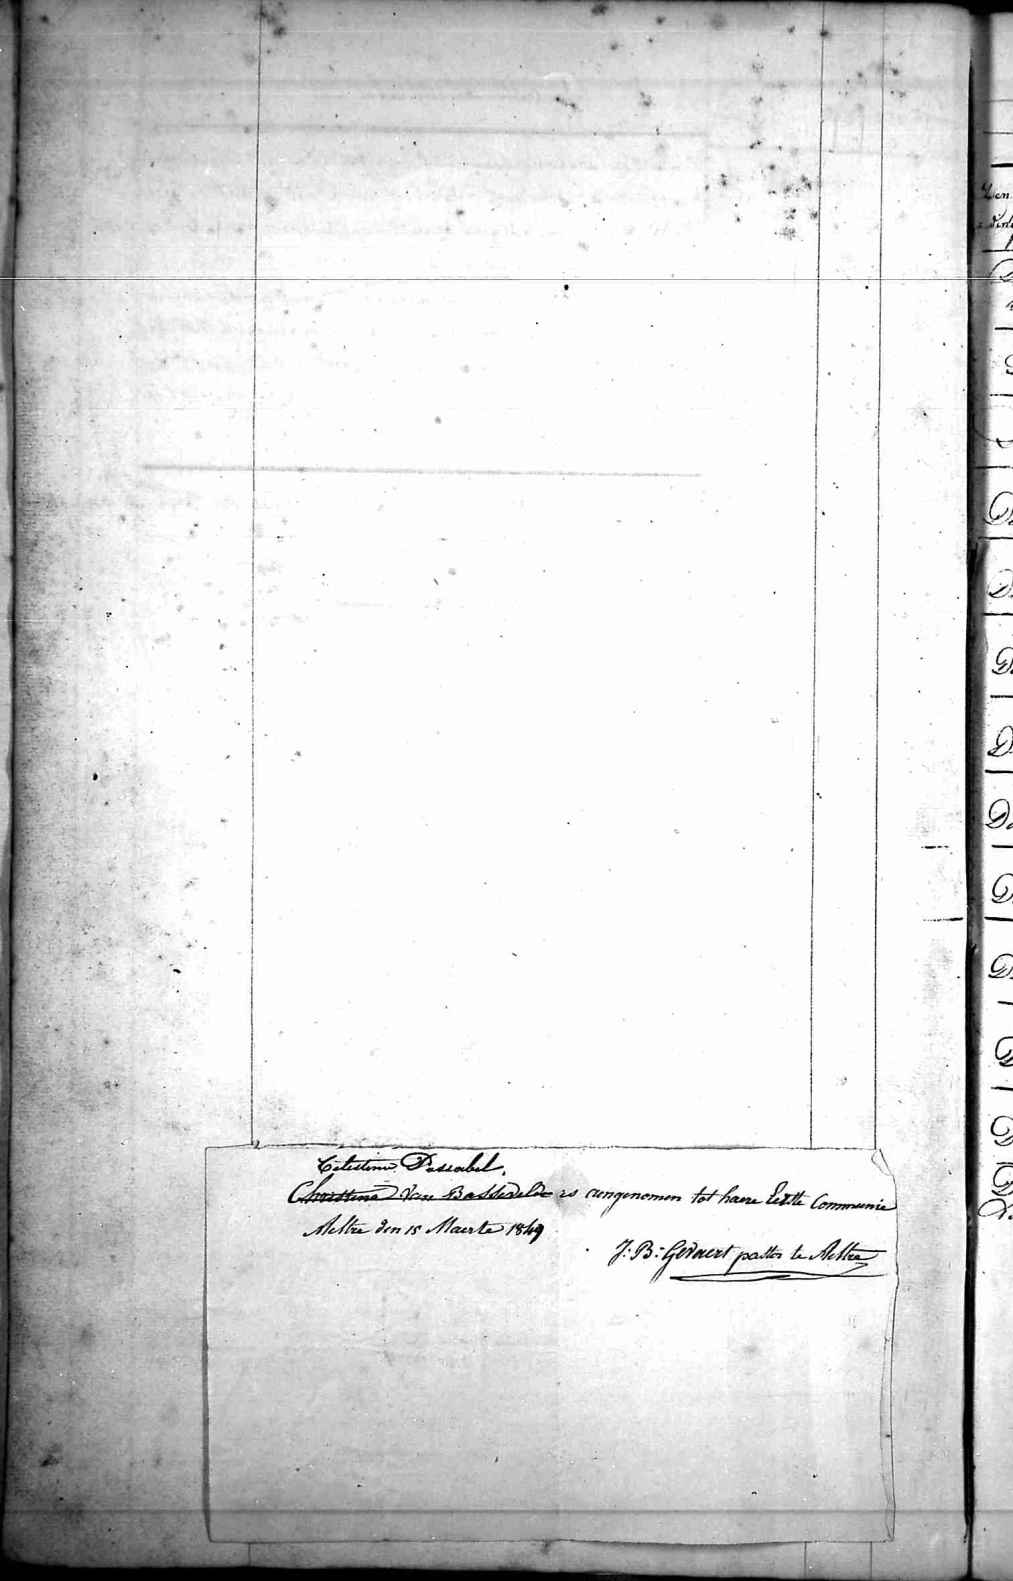 Celestine Descabel.
Christina Van Bassevelde is aengenomen tot haere Eerste Communie
Aeltre den 15 Maerte 1849
J: B: Gevaert pastor te Aeltre